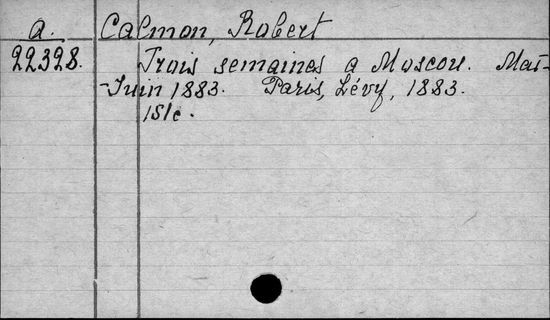 a. Calmon, Robert
22328. Trois semaines a Moscou. Mai-
-Juin 1883. Paris, Lévy, 1883.